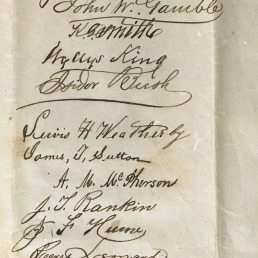 John W. Gamble
K. Smith
Wyllys King
Isidor Bush
Lewis H Weatherby
James, T, Sutton
A. M. McPherson
J. T. Rankin
J F Hume